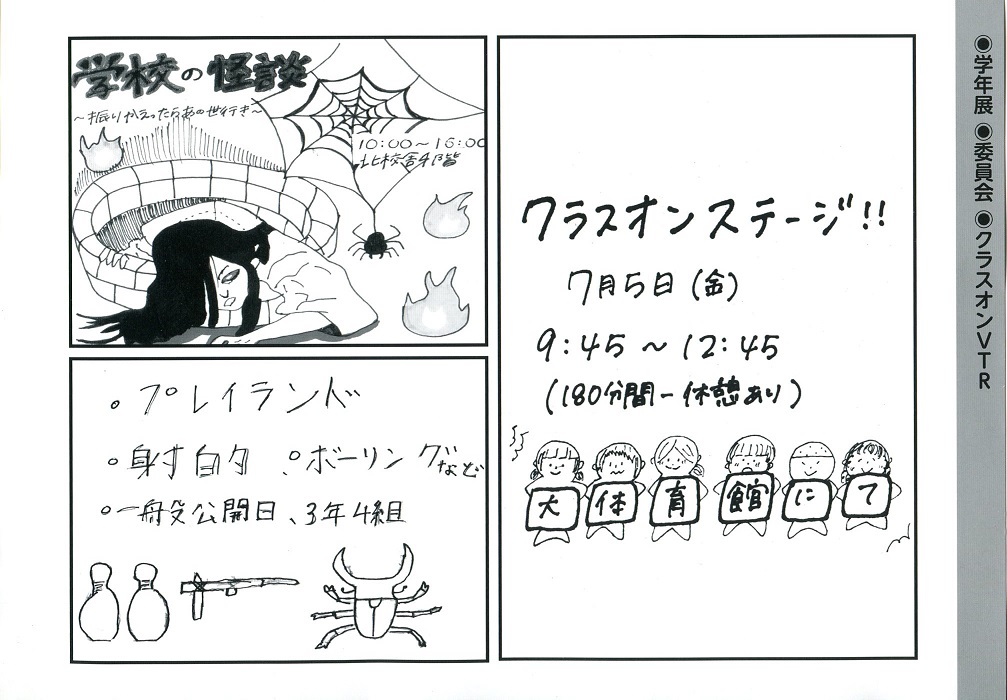 ●学年展 ●委員会 ●クラスオンVTR
学校の怪談
～振りかえったらあの世行き～
10:00～16:00
北校舎4階
クラスオンステージ!!
7月5日(金)
9:45～12:45
(180分間-休憩あり)
大体育館にて
。プレイランド
。射的 。ボーリングなど
。一般公開日、3年4組